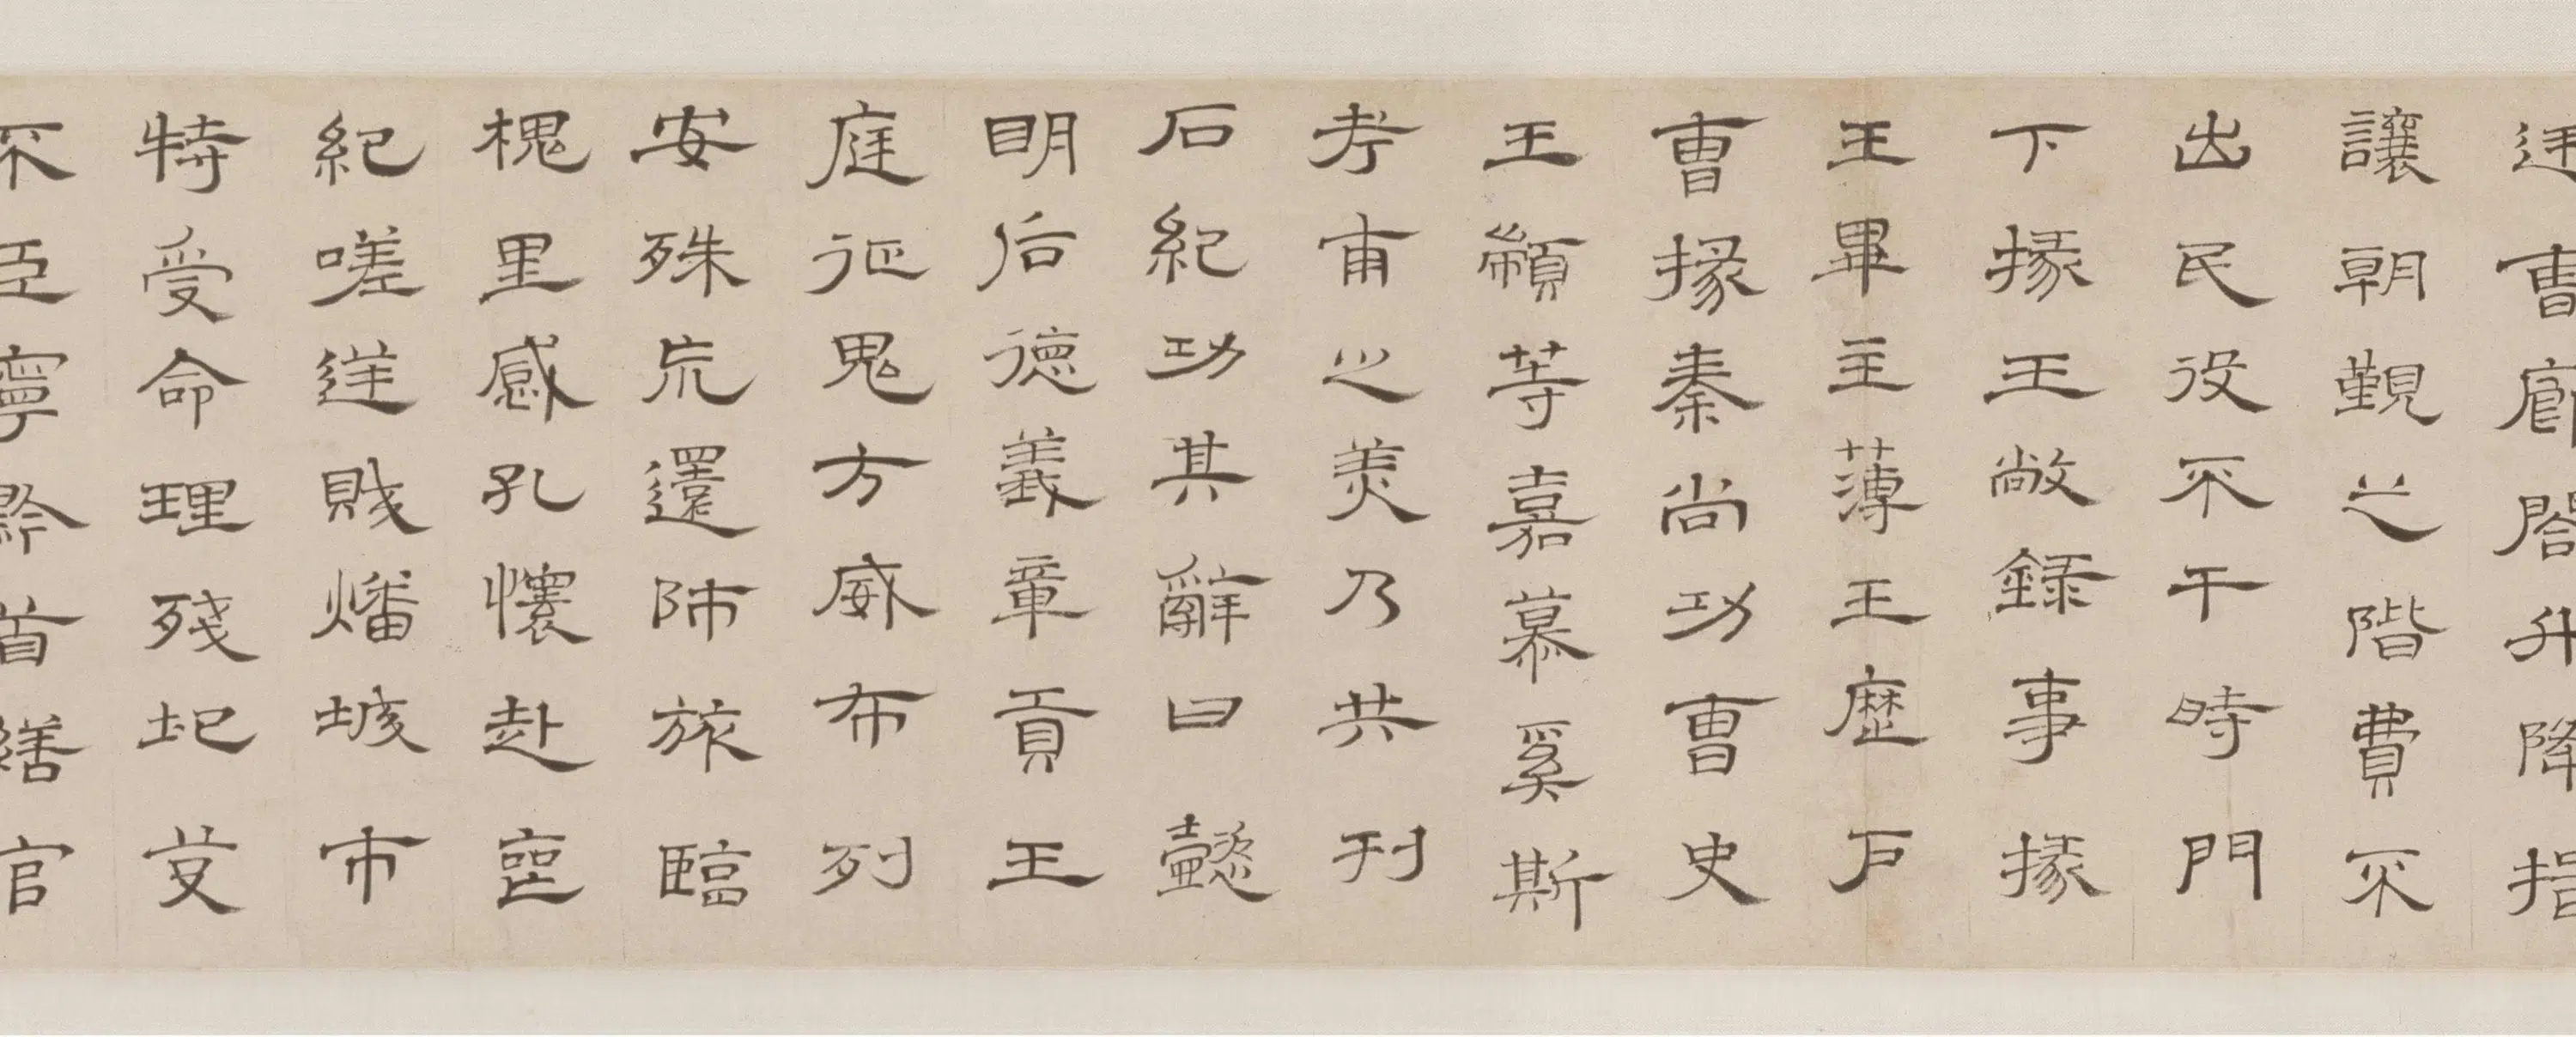 廷曹廊閤升降揖
讓朝覲之階費不
出民役不干時門
下掾王敞録事掾
王畢主薄王歷戶
曹掾秦尚功曹史
王顓等嘉慕奚斯
考甫之美乃共刊
石紀功其辭曰懿
明后德義章貢王
庭征鬼方威布列
安殊巟還師旅臨
槐里感孔懷赴喪
紀嗟逆賊燔城市
特受命理殘圯芟
不臣寧黔首繕官